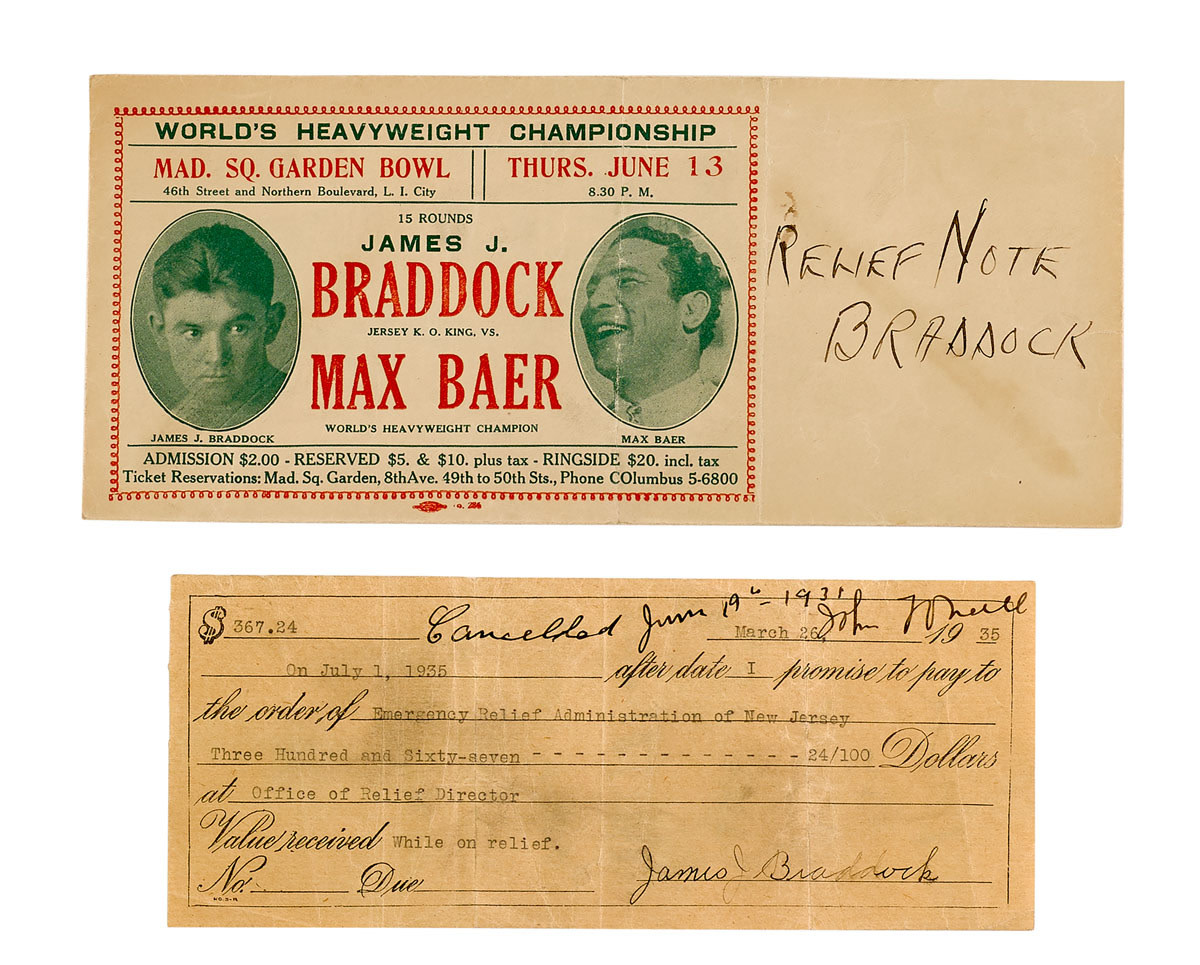 WORLD'S HEAVYWEIGHT CHAMPIONSHIP
MAD. SQ. GARDEN BOWL
46th Street and Northern Boulevard, L. I. City
THURS. JUNE 13
8.30 P. M.
15 ROUNDS
JAMES J.
BRADDOCK
JERSEY K. O. KING, VS.
MAX BAER
WORLD'S HEAVYWEIGHT CHAMPION
JAMES J. BRADDOCK
MAX BAER
ADMISSION $2.00 - RESERVED $5. & $10. plus tax - RINGSIDE $20. incl. tax
Ticket Reservations: Mad. Sq. Garden, 8th Ave. 49th to 50th Sts., Phone COlumbus 5-6800
RELIEF NOTE
BRADDOCK
$ 367.24
Cancelled June 19
John
March 26, 19 35
On July 1, 1935 after date I promise to pay to
the order of Emergency Relief Administration of New Jersey
Three Hundred and Sixty-seven - - - - - - - - - - - - - 24/100 Dollars
at Office of Relief Director
Value received While on relief.
No. Due
James J Braddock